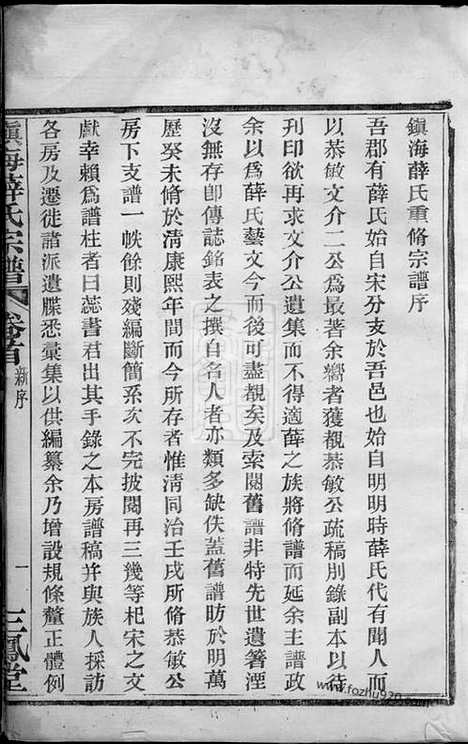 鎮海薛氏重脩宗譜序
吾郡有薛氏始自宋分支於吾邑也始自明明時薛氏代有聞人而
以恭敏文介二公為最著余嚮者獲觀恭敏公疏稿別錄副本以待
刊印欲再求文介公遺集而不得適薛之族將脩譜而延余主譜政
余以為薛氏藝文今而後可盡覩矣及索閱舊譜非特先世遺箸湮
沒無存卽傳誌銘表之撰自名人者亦類多缺佚蓋舊譜昉於明萬
歷癸未脩於清康熙年間而今所存者惟清同治壬戌所脩恭敏公
房下支譜一帙餘則殘編斷簡系次不完披閱再三幾等杞宋之文
獻幸賴為譜杜者曰蕊書君出其手錄之本房譜稿并與族人採訪
各房及遷徙諸派遺牒悉彙集以供編纂余乃增設規條釐正體例
鎮海薛氏宗譜
卷首
新序
一
三鳳堂
www.fozhu920.com